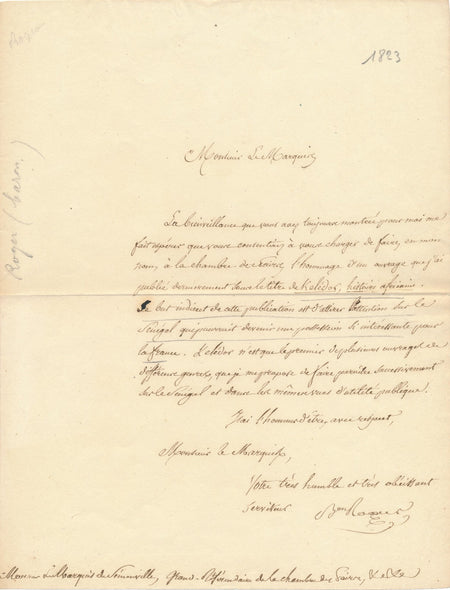 Roger
1823
Roger (baron)
Monsieur Le Marquis
La bienveillance que vous avez toujours montrée pour moi me
fait espérer que vous consentirez à vous charger de faire, en mon
nom, à la chambre des Pairs l'hommage d'un ouvrage que j'ai
publié dernièrement sous le titre de Kelédor, histoire africaine.
Le but indirect de cette publication est d'attirer l'attention sur le
Sénégal qui pourrait devenir une possession si intéressante pour
la france. Kelédor n'est que le premier de plusieurs ouvrages de
différens genres, que je me propose de faire paraître successivement
sur le Sénégal et dans les mêmes vues d'utilité publique.
J'ai l'honneur d'être, avec respect,
Monsieur le Marquis,
Votre très humble et très obéissant
Serviteur
Bon Roger
Monsieur Le Marquis de Sémonville, Grand-Référendaire de la chambre des Pairs, &a &a &a